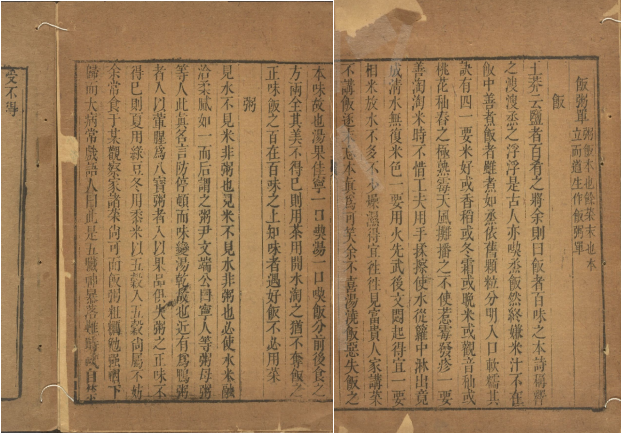 飯粥單 粥飯本也餘菜末也本立而道生作飯粥單
飯
王莽云鹽者百肴之將余則曰飯者百味之本詩稱釋
之溲溲蒸之浮浮是古人亦喫蒸飯然終嫌米汁不在
飯中善煮飯者雖煮如蒸依舊顆粒分明入口軟糯其
訣有四一要米好或香稻或冬霜或晚米或觀音秈或
桃花秈舂之極熟霉天風攤播之不使惹霉發疹一要
善淘淘米時不惜工夫用手揉擦使水從籮中淋出竟
成清水無復米色一要用火先武後文悶起得宜一要
相米放水不多不少燥濕得宜往往見富貴人家講菜
不講飯逐末忘本真為可笑余不喜湯澆飯惡失飯之
本味故也湯果佳寧一口喫湯一口喫飯分前後食之
方兩全其美不得已則用茶用開水淘之猶不奪飯之
正味飯之百在百味之上知味者遇好飯不必用菜
粥
見水不見米非粥也見米不見水非粥也必使水米融
洽柔膩如一而后謂之粥尹文端公曰寧人等粥毋粥
等人此真名言防停頓而味變湯乾故也近有為鴨粥
者入以葷腥為八寶粥者入以果品俱失粥之正味不
得已則夏用綠豆冬用黍米以五穀入五穀尚屬不妨
余常食于某觀察家諸菜尚可而飯粥粗糲勉強咽下
歸而大病常戲語人曰此是五臟神暴落難時故自禁
受不得